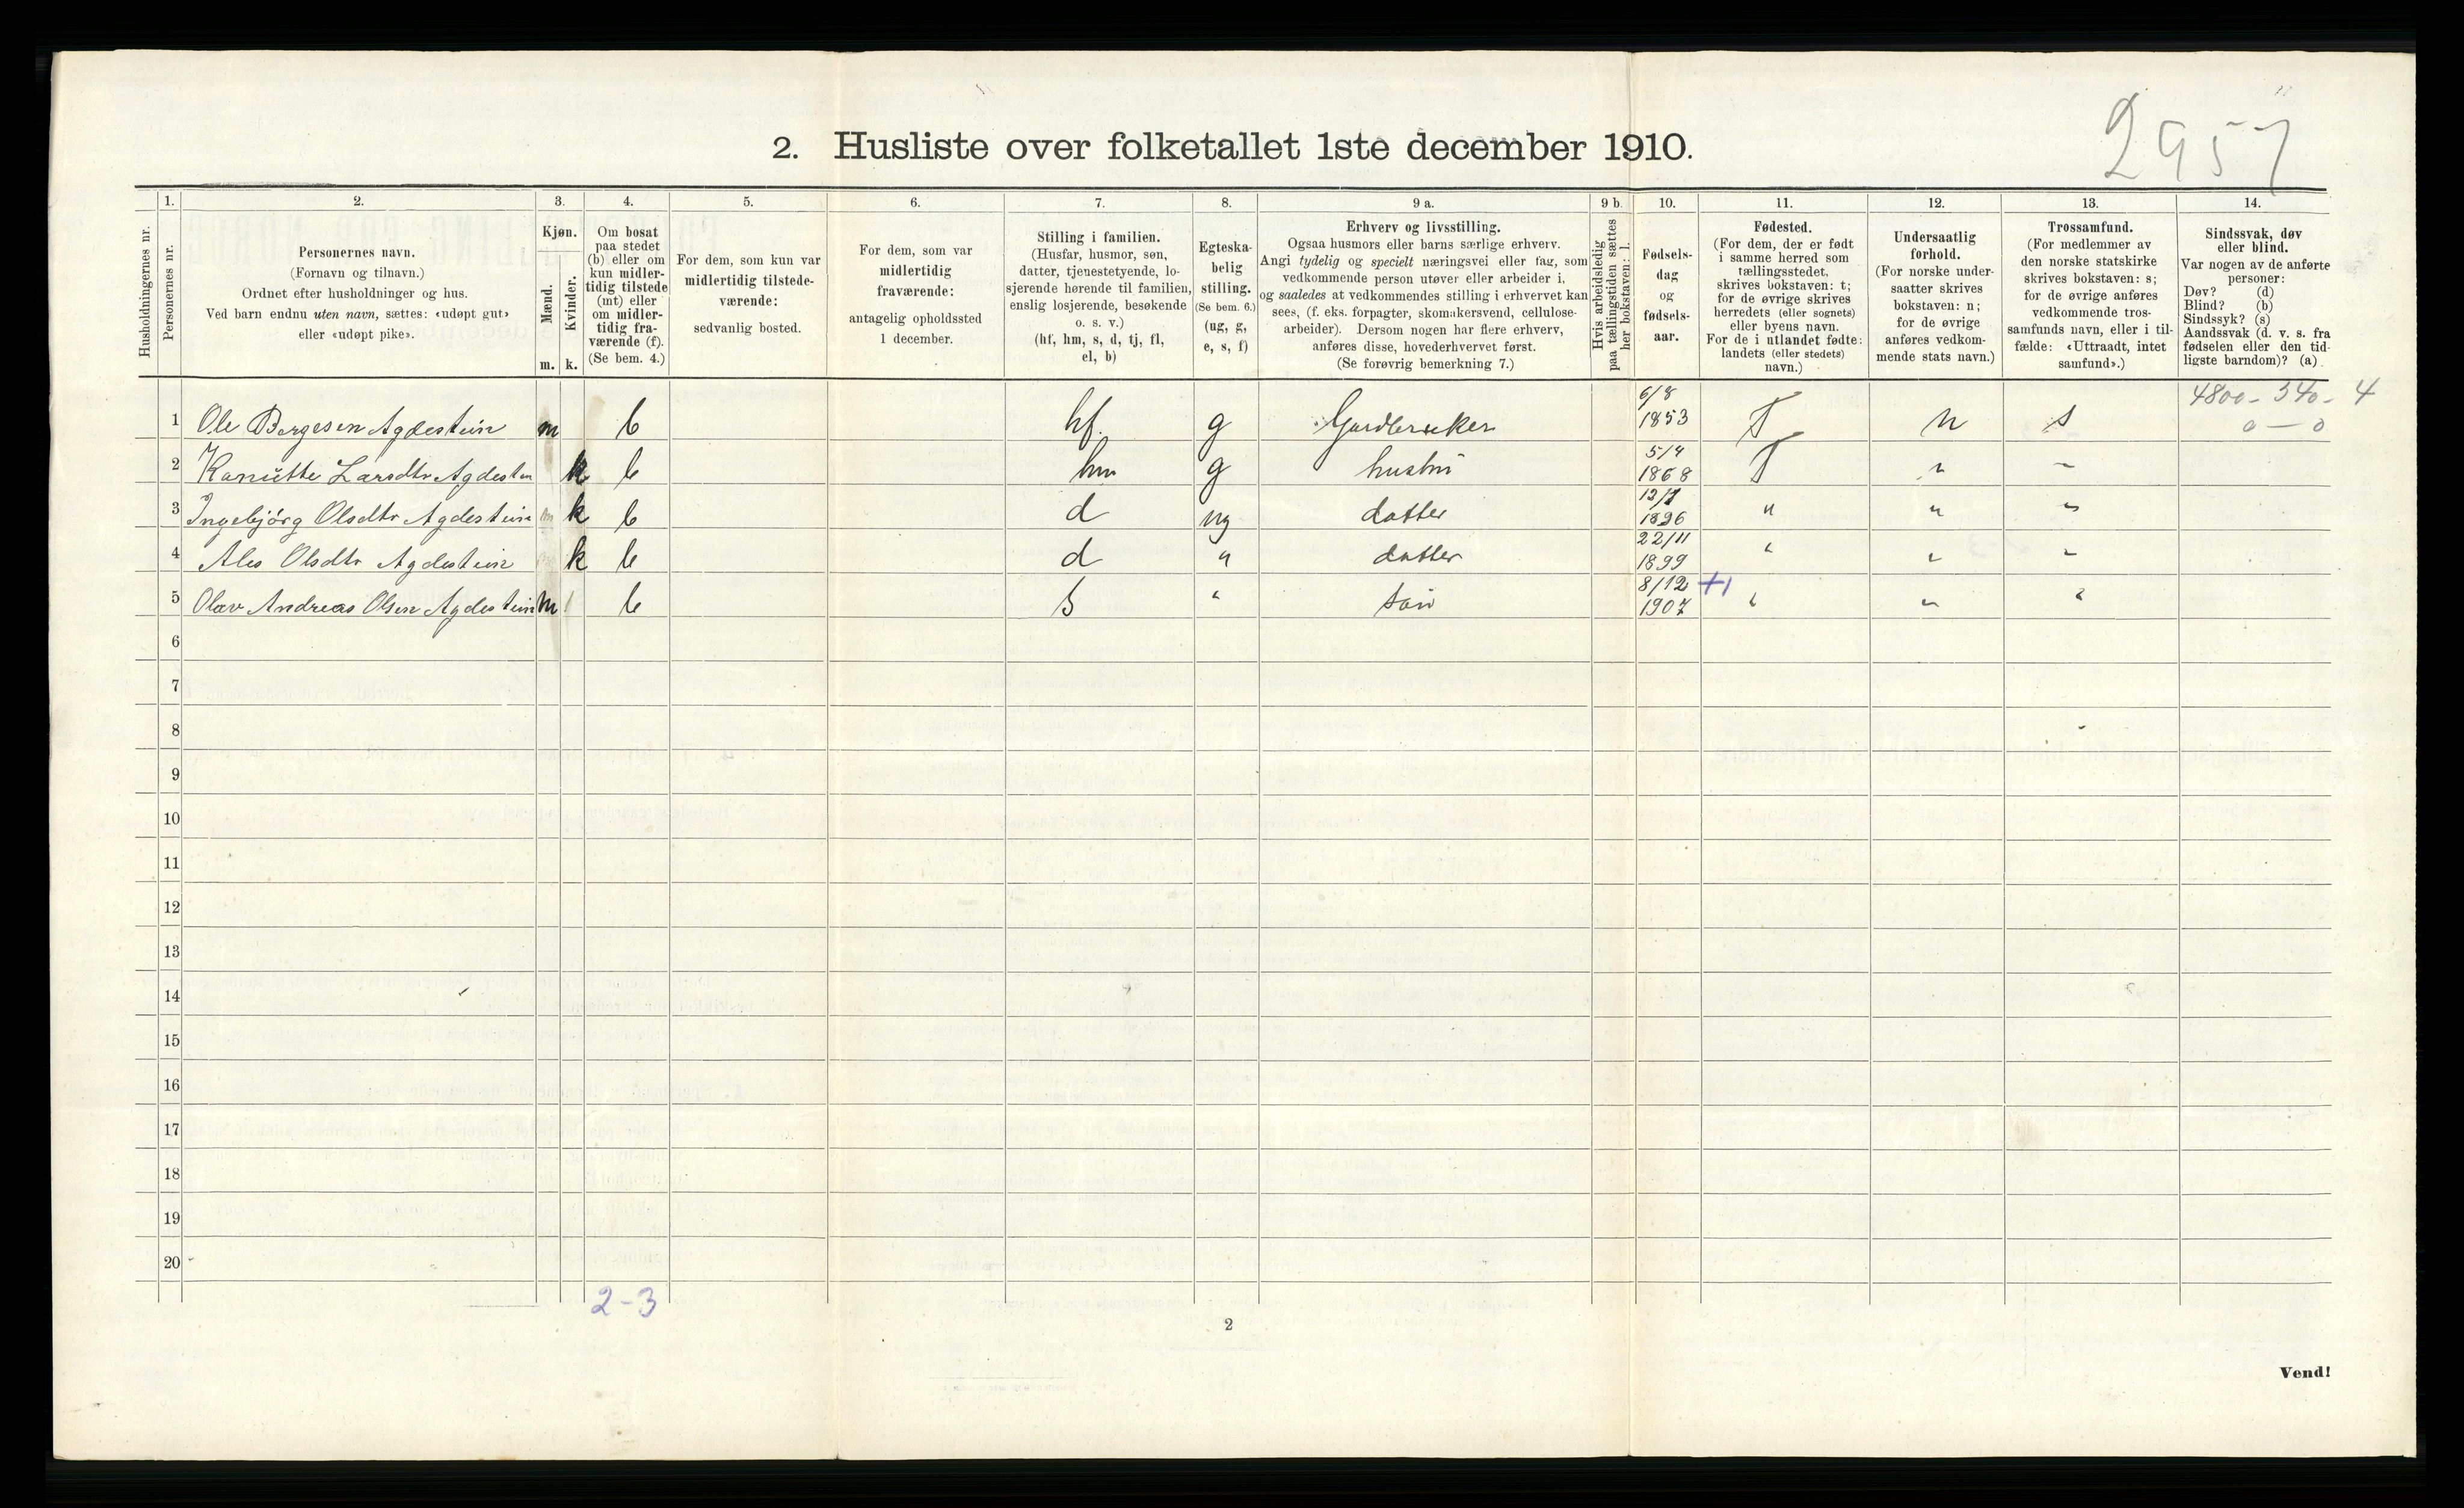 2957
2. Husliste over folketallet 1ste december 1910.
Husholdningernes nr.
1.
Personernes nr.
2.
Personernes navn.
(Fornavn og tilnavn.)
Ordnet efter husholdninger og hus.
Ved barn endnu uten navn, sættes: «udøpt gut»
eller «udøpt pike».
3.
Kjøn.
Mænd.
Kvinder.
m. k.
4.
Om bosat
paa stedet
(b) eller om
kun midler-
tidig tilstede
(mt) eller
om midler-
tidig fra-
værende (f).
(Se bem. 4.)
5.
For dem, som kun var
midlertidig tilstede-
værende:
sedvanlig bosted.
6.
For dem, som var
midlertidig
fraværende:
antagelig opholdssted
1 december.
7.
Stilling i familien.
(Husfar, husmor, søn,
datter, tjenestetyende, lo-
sjerende hørende til familien,
enslig losjerende, besøkende
o. s. v.)
(hf, hm, s, d, tj, fl,
el, b)
8.
Egteska-
belig
stilling.
(Se bem. 6.)
(ug, g,
e, s, f)
9 a.
Erhverv og livsstilling.
Ogsaa husmors eller barns særlige erhverv.
Angi tydelig og specielt næringsvei eller fag, som
vedkommende person utøver eller arbeider i,
og saaledes at vedkommendes stilling i erhvervet kan
sees, (f. eks. forpagter, skomakersvend, cellulose-
arbeider). Dersom nogen har flere erhverv,
anføres disse, hovederhvervet først.
(Se forøvrig bemerkning 7.)
9 b.
Hvis arbeidsledig
paa tællingstiden sættes
her bokstaven: l.
10.
Fødsels-
dag
og
fødsels-
aar.
11.
Fødested.
(For dem, der er født
i samme herred som
tællingsstedet,
skrives bokstaven: t;
for de øvrige skrives
herredets (eller sognets)
eller byens navn.
For de i utlandet fødte:
landets (eller stedets)
navn.)
12.
Undersaatlig
forhold.
(For norske under-
saatter skrives
bokstaven: n;
for de øvrige
anføres vedkom-
mende stats navn.)
13.
Trossamfund.
(For medlemmer av
den norske statskirke
skrives bokstaven: s;
for de øvrige anføres
vedkommende tros-
samfunds navn, eller i til-
fælde: «Uttraadt, intet
samfund».)
14.
Sindssvak, døv
eller blind.
Var nogen av de anførte
personer:
Døv? (d)
Blind? (b)
Sindssyk? (s)
Aandssvak (d. v. s. fra
fødselen eller den tid-
ligste barndom)? (a)
4800 - 340 - 4
0 — 0
1 Ole Borgesen Agdestein m b hf. g Gardbruker 6/8 1853 T n s
2 Kanutte Larsdtr Agdestein k b hm g hustru 5/4 1868 T " "
3 Ingebjørg Olsdtr Agdestein k b d ug datter 12/7 1896 " " "
4 Ales Olsdtr Agdestein k b d " datter 22/11 1899 " " "
5 Olav Andreas Olsen Agdestein m b s " søn 8/12 1907 +1 " " "
6
7
8
9
10
11
12
13
14
15
16
17
18
19
20
2-3
2
Vend!